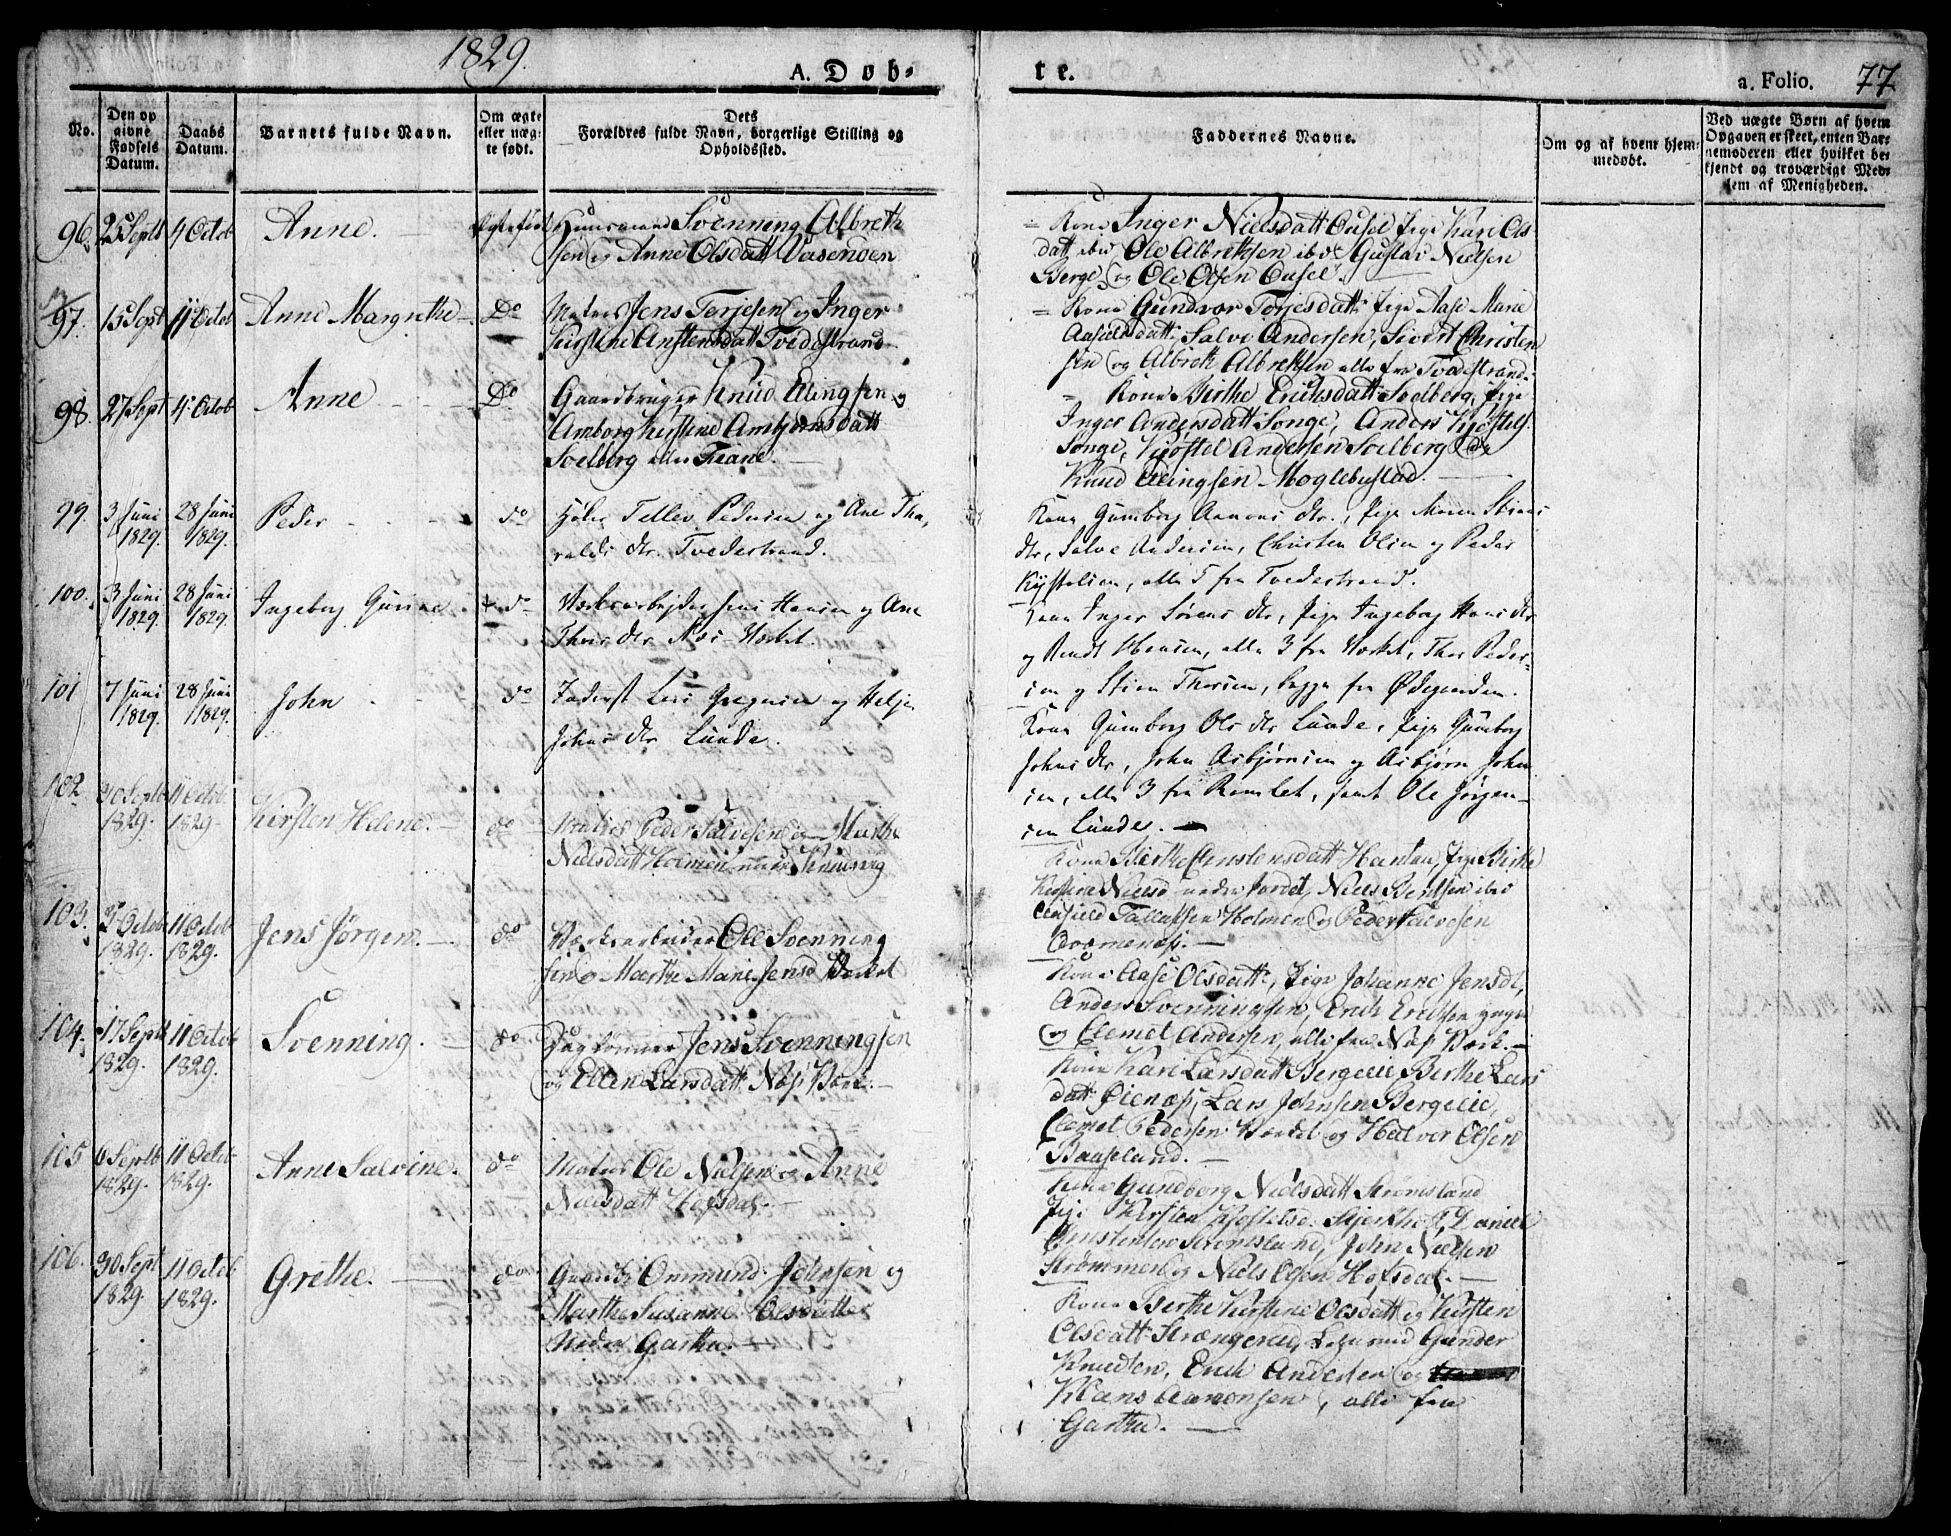 1829.
A. Døb-
te.
a. Folio. 77
No.
Den op
givne
Fødsels
Datum.
Daabs
Datum.
Barnets fulde Navn.
Om ægte
eller uæg-
te født.
Dets
Forældres fulde Navn, borgerlige Stilling og
Opholdssted.
Faddernes Navne.
Om og af hvem hjem-
medøbt.
Ved uægte Børn af hvem
Opgaven er skeet, enten Bar-
nemoderen eller hvilket be-
kjendt og troværdigt Med-
lem af Menigheden.
96. 25 Septb 4 Octob Anne. Ægtefødt Huusmand Svenning Albreth
sen og Anne Olsdatt
Kone Inger Nielsdatt Ousel Pige Kari Ols
datt ibid Ole Albrethsen ibid Gustav Nielsen
Berge, og Ole Olsen Ousel
97. 15 Sept 11 Octob Anne Margrethe Do Matros Jens Terjesen og Inger
Kirstine Anstensdatt Tvedestrand
Kone Gundvor Torjesdatt Pige Aase Marie
datt, Salve Andersen, Sivert Christen
sen og Albreth Albrethsen alle fra Tvedestrand
98. 27 Sept 4 Octob Anne Do Gaardbruger Knud Ellingsen og
Amborg Kirstine Ambjørnsdatt
Soelberg
Kone Birthe Erichsdatt Soelberg, Pige
Inger Andersdatt Songe, Anders Kjøstels.
Songe, Kjøstel Andersen Soelberg og
Knud Ellingsen Moglebustad.
99. 3 Juni 1829. 28 Juni 1829. Peder do Tellev Pedersen og Ane Tho
ralds dtr. Tvedestrand.
Kone Gumborg Aanons dtr., Pige Maren Stians
dtr, Salve Andersen, Christen Olsen og Peder
Kjøstelsen, alle 5 fra Tvedestrand.
100. 3 Juni 1829. 28 Juni 1829. Ingeborg Gurine do Værksarbejder Jens Hansen og Ane
Thors dtr Næs-Værket.
Kone Inger Sørens dtr, Pige Ingeborg Hans dtr
og Bendt Hansen, alle 3 fra Værket, Thor Peder-
sen og Stian Thorsen, begge fra Ødegaarden.
101 7 Juni 1829. 28 Juni 1829. John do Inderst Lars Gregersen og Helje
Johns dtr Lunde.
Kone Gumborg Ols dtr Lunde, Pige Gumborg
Johns dtr, John Asbjørnsen og Asbjørn John
sen, alle 3 fra Ramlet, samt Ole Jørgen-
sen Lunde.
102 30 Septb 1829. 11 Octob 1829. Kirsten Helene. do Matros Peder Salvesen og Marthe
Nielsdatt Holmen
Kone Birthe Anstensdatt Hantau, Pige Birthe
Kirstine Nielsd Niels Bentsen ibid
Tallefsen Holmen og Peder Salvesen
103. 5 Octob 1829. 11 Octob 1829. Jens Jørgen. do Værksarbeider Ole Svenning
sen og Marthe Marie Jensd Værket
Kone Aase Olsdatt, Pige Johanne Jensdt,
Anders Svenningsen, Erich Erichsen
og Clemet Andersen, alle fra Næs Værk.
104. 17 Septb 1829. 11 Octob 1829. Svenning. do Daglønner Jens Svenningsen
og Ellen Larsdatt Næs Værk.
Kone Kari Larsdatt Bergelie Berthe Lars
datt Lars Johnsen Bergelie,
Clemet Pedersen Værket og Halvor Olsen
Baaseland.
105 6 Septb 1829. 11 Octob 1829. Anne Salvine. do Matros Ole Nielsen og Anne
Nielsdatt Hofsdal.
Kone Gundborg Nielsdatt Strømsland
Pige Kirsten Kjøstelsd. Daniel
Anstensen Strømsland, John Nielsen
Strømmen og Niels Olsen Hofsdal.
106. 30 Sept 1829. 11 Octob 1829. Grethe. do Gaardbr Ommund Johnsen og
Marthe Susanne Olsdatter
Neder Gartha.
Kone Berthe Kirstine Olsdatt og Kirsten
Olsdatt Strængereid, Gunder
Knudsen, Erich Andersen og
Klaus Aanonsen, alle fra
Gartha.